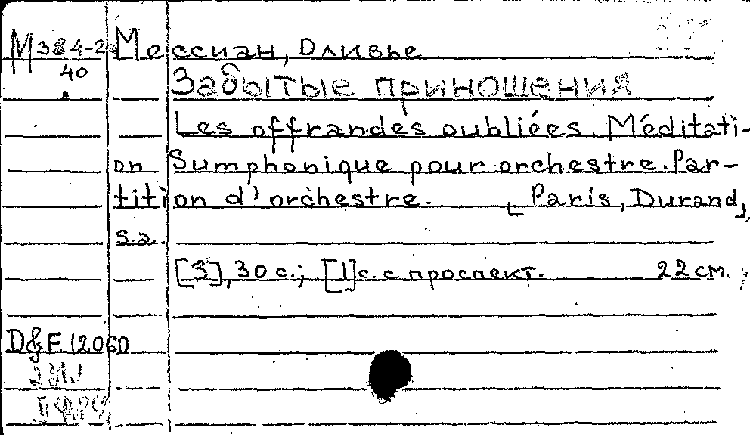 М 384-2 Мессиан, Оливье
40
Забытые приношения
Les offrandes oubliées. Méditati-
on Sumphonique pour orchestre. Par-
tition d'orchestre. [Paris, Durand,
s.a.
[3], 30 с.; [1] с. с проспект. 22 см.
D&F. 12060